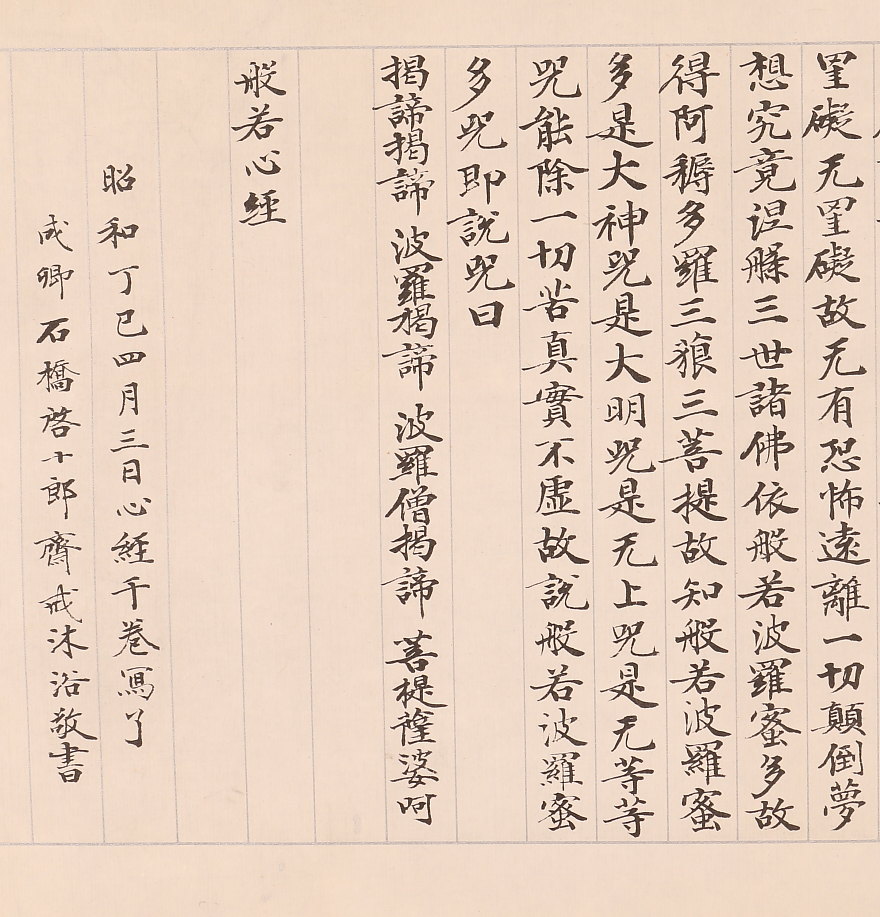 罣礙无罣礙故无有恐怖遠離一切顛倒夢
想究竟涅槃三世諸佛依般若波羅蜜多故
得阿耨多羅三藐三菩提故知般若波羅蜜
多是大神咒是大明咒是无上咒是无等等
咒能除一切苦真實不虛故說般若波羅蜜
多咒即說咒曰
揭諦揭諦 波羅揭諦 波羅僧揭諦 菩提薩婆呵
般若心經
昭和丁巳四月三日心經千卷寫了
成卿石橋啓十郎齋戒沐浴敬書